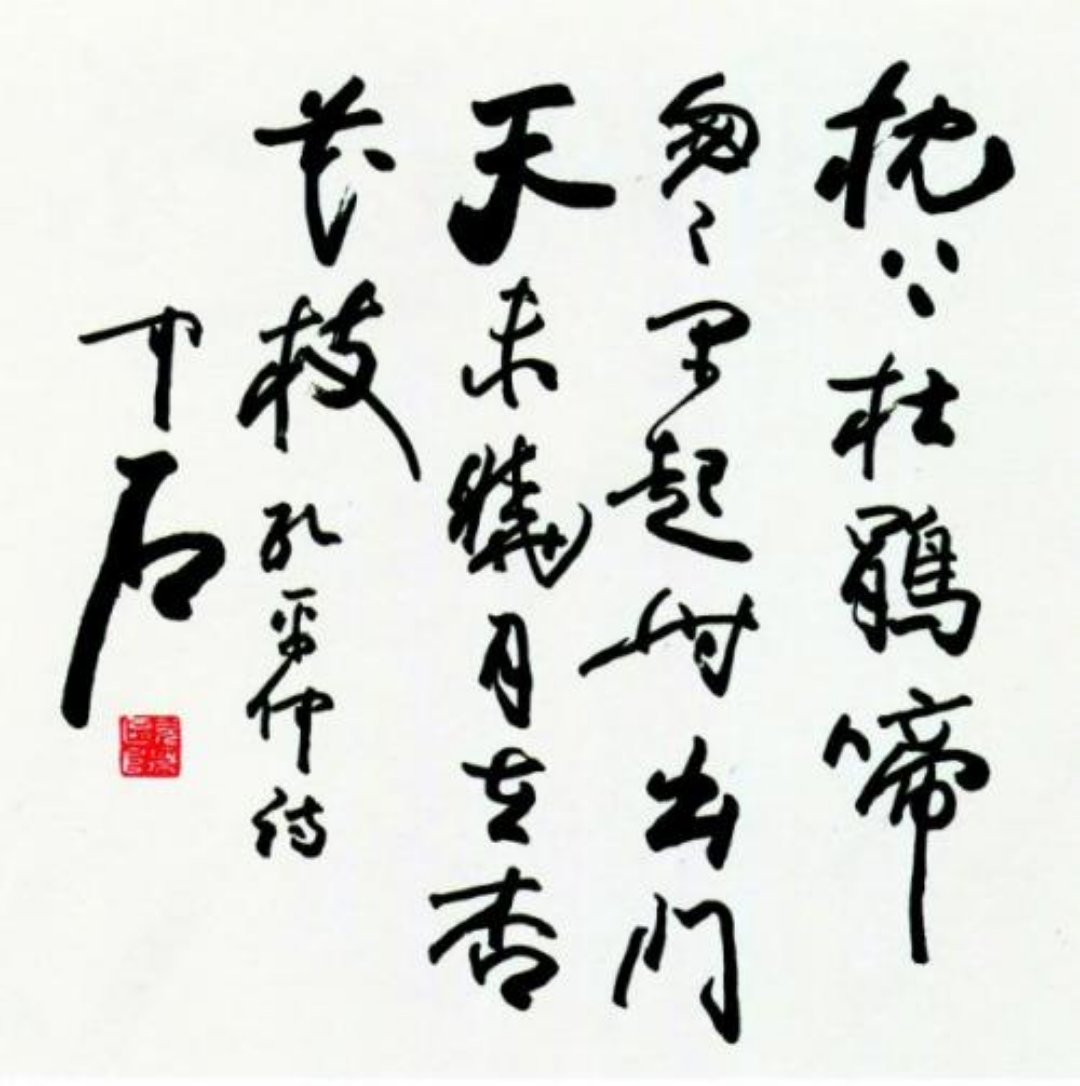 枕上杜鵑啼
匆匆早起時出門
天未曉月在杏
花枝 孔平仲詩
中石